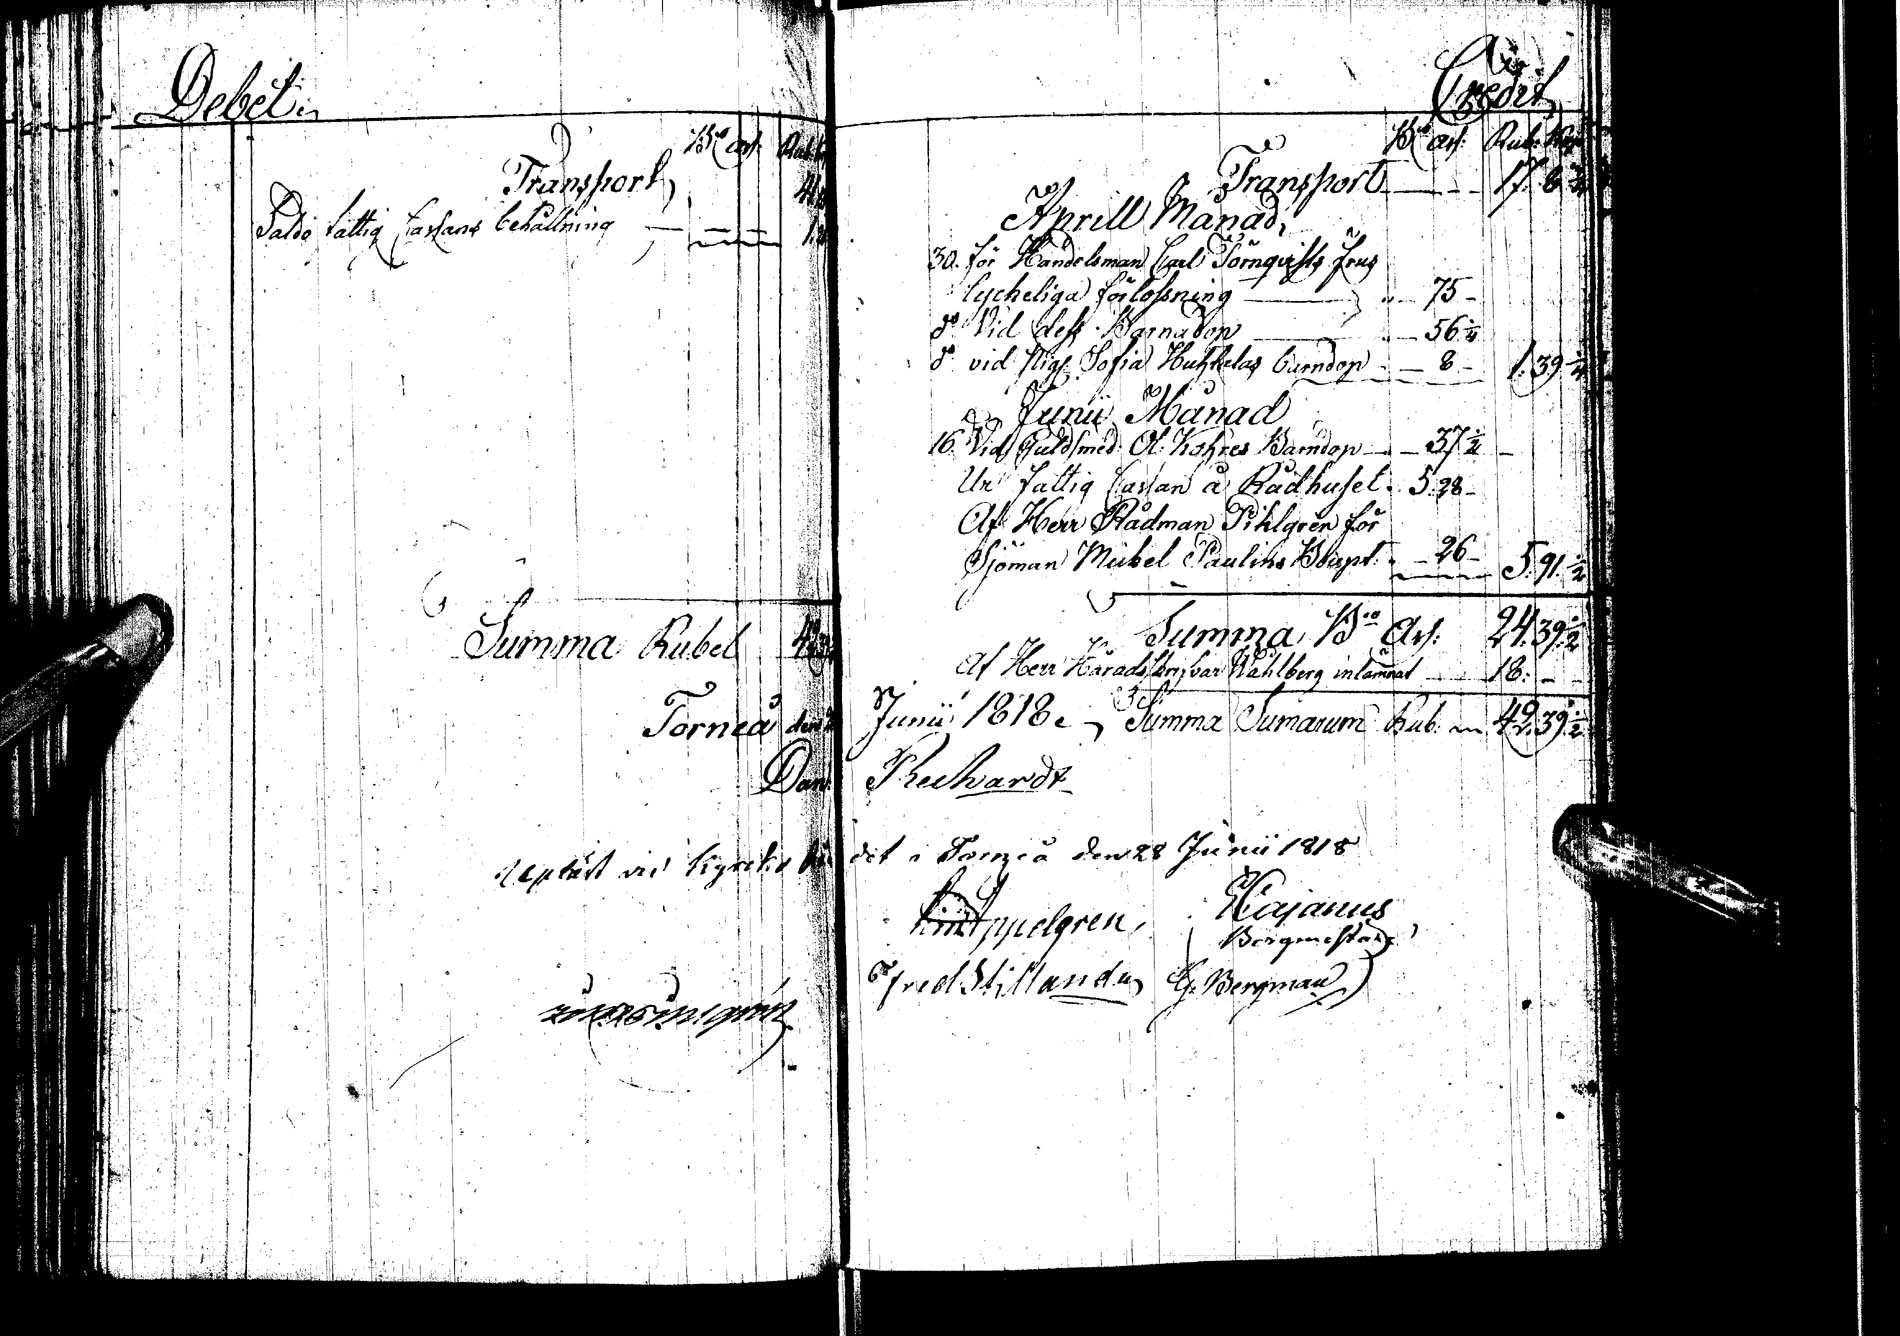 Debet
Bco Ass: Rub:
Transport, 41
Saldo fattig Cassans behållning 1.
Summa Rubel 42.39
Torneå den
Dan:
Credit
Bco Ass: Rub: Kop
Transport 17. 8 3/4
Aprill Månad,
30. för Handelsman Carl Törnqvists frus
lyckeliga förlossning 75
do Vid dess Barnadop 56 1/4
do vid pig: Sofia Huhtelas barndop 8 1:39 1/4
Junii Månad
16 Vid Guldsmed Ol: Kohres Barndop 37 1/2
Ur fattig Cassan å Rådhuset 5.28
Af Herr Rådman Pihlgren för
Sjöman Mickel Paulins 26 5:91 1/2
Summa Bco Ass: 24.39 1/2
Af Herr Häradsskrifvar Wahlberg inlämnat 18:
Junii 1818. Summa Sumarum Rub: 42.39 1/2
Rechardt
vid Kyrko
det i Torneå den 28 Junii 1818
Appelgren,
Kajanus
Borgmestare
Fred Stillander
G. Bergman